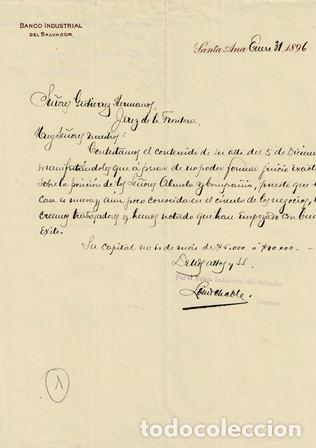 BANCO INDUSTRIAL
DEL SALVADOR
Santa Ana Enero 31 1896
Señores Gutierrez Hermanos,
Jerez de la Frontera,
Muy Señores nuestros:
Contestamos el contenido de su atta. del 5 de Diciem
manifestándoles que á pesar de no poder formar juicio exacto
sobre la posición de los Señores y Compañia, puesto que
casa es nueva y aun poco conocida en el circulo de los negocios,
creemos trabajadores y hemos notado que han empezado con buen
Exito.
Su capital no es de más de $5.000 á $10.000.-
De Uds. attos y SS.
Por el Banco Industrial del Salvador
Gerente.
todocoleccion
todocoleccion.net